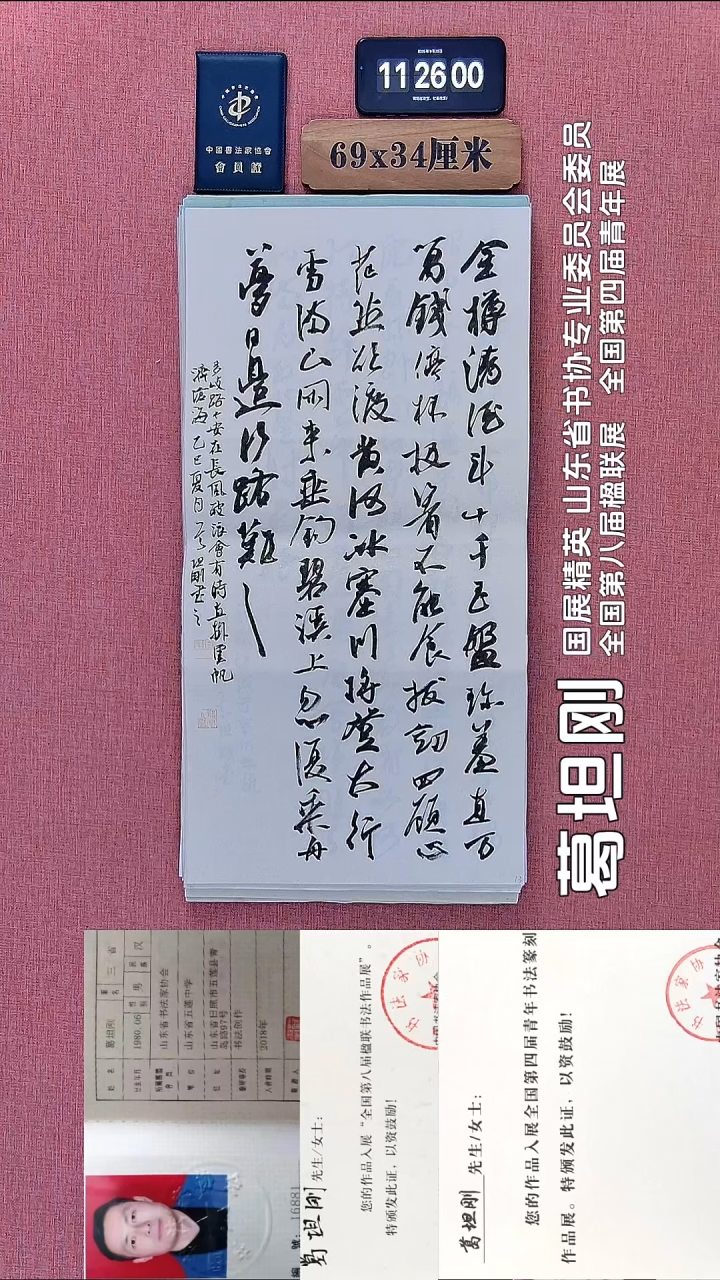 11 26 00
中國書法家協會
會員證
69x34厘米
金樽清酒斗十千玉盤珍羞直万
萬錢停杯投箸不能食拔剑四顾心
茫然欲渡黄河冰塞川将登太行
雪满山闲来垂钓碧溪上忽復乘舟
夢日邊行路難
多岐路今安在長風破浪會有時直掛雲帆
濟滄海 乙巳夏月 坦剛書之
国展精英 山东省书协专业委员会委员
全国第八届楹联展 全国第四届青年展
葛坦刚
姓名 葛坦刚
出生年月 1980.06 性别 男 民族 汉
山东省书法家协会
山东省五莲中学
山东省日照市五莲县青
岛路97号
书法创作
入会时间 2018年
編號：16881
葛坦刚 先生/女士：
您的作品入展“全国第八届楹联书法作品展”。
特颁发此证，以资鼓励！
葛坦刚 先生/女士：
您的作品入展全国第四届青年书法篆刻
作品展。特颁发此证，以资鼓励！